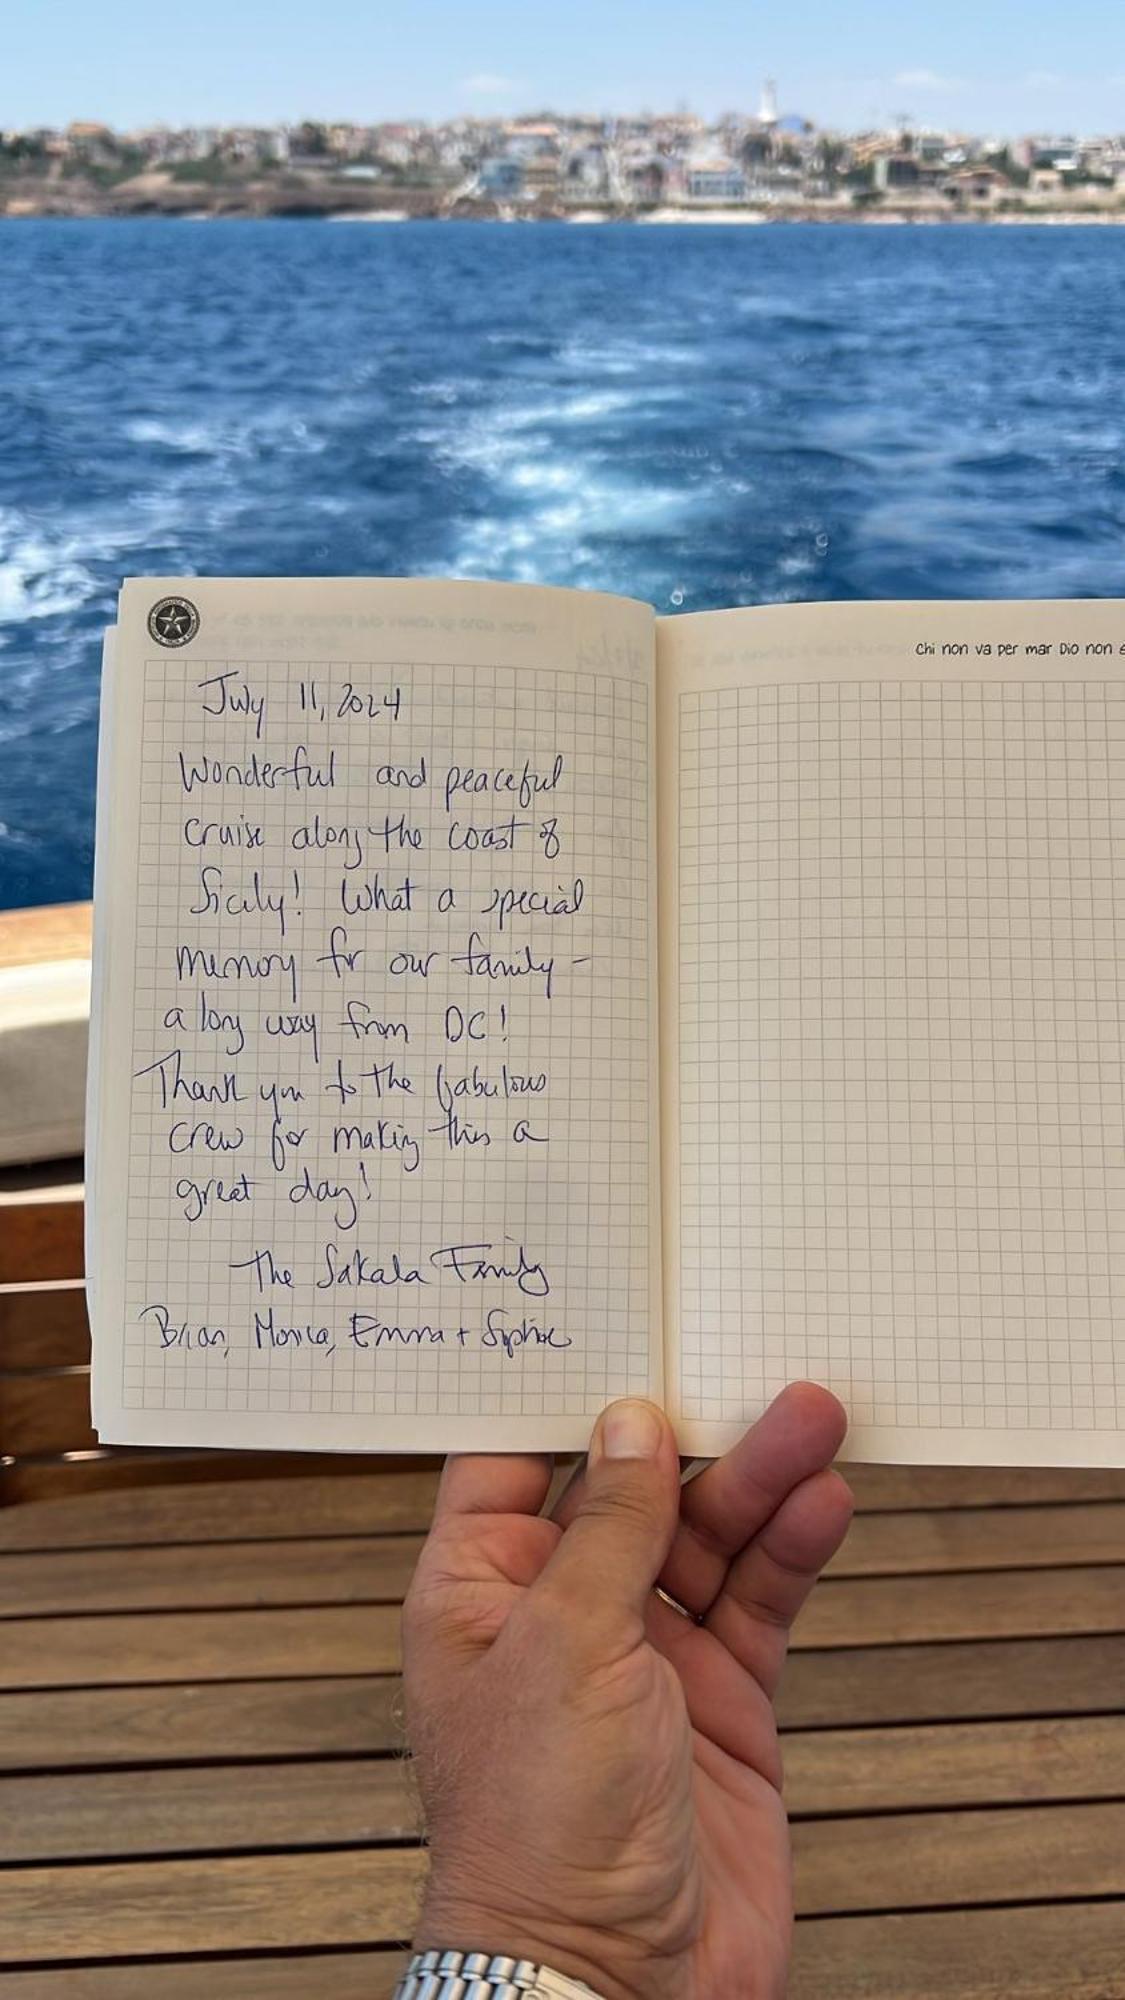 July 11, 2024
Wonderful and peaceful
cruise along the coast of
Sicily! What a special
memory for our family -
a long way from DC!
Thank you to the fabulous
crew for making this a
great day!
The Sakala Family
Brian, Monica, Emma + Sophie
Chi non va per mar Dio non